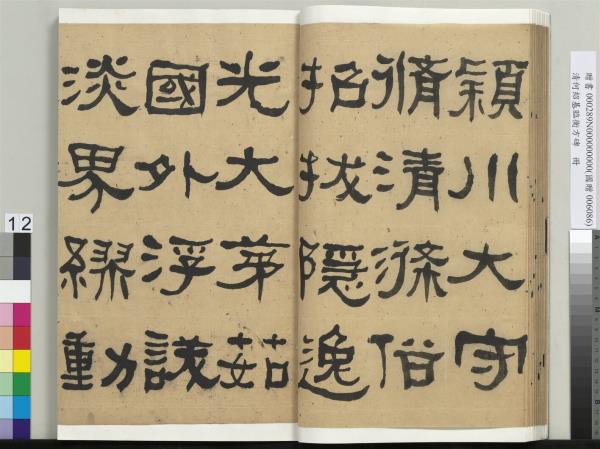 頴川大守
脩清滌俗
招拔隱逸
光大茅茹
國外浮
淡界繆動
贈書 000289N000000000(國贈 006086)
清何紹基臨衡方碑 冊
12